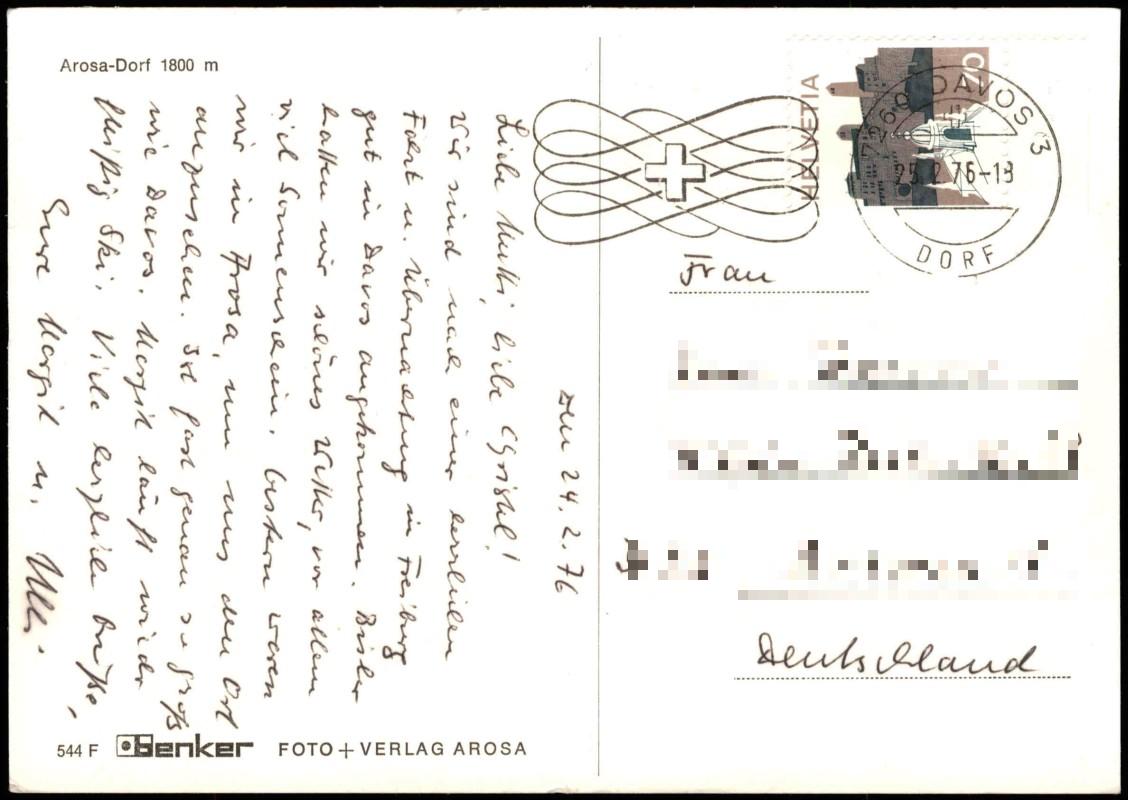 Arosa-Dorf 1800 m
Den 24.2.76
Liebe Mutti, liebe Christel!
Wir sind nach einer herrlichen
Fahrt u. Übernachtung in Freiburg
gut in Davos angekommen. Bisher
hatten wir schönes Wetter, vor allem
viel Sonnenschein. Gestern waren
wir in Arosa, um uns den Ort
anzusehen. Ist fast genau so groß
wie Davos. Margit läuft wieder
fleißig Ski. Viele herzliche Grüße,
Eure Margit u. Ulli.
544 F Benker FOTO+VERLAG AROSA
HELVETIA
70
7260 DAVOS 3
25.2.76-18
DORF
Frau
Deutschland